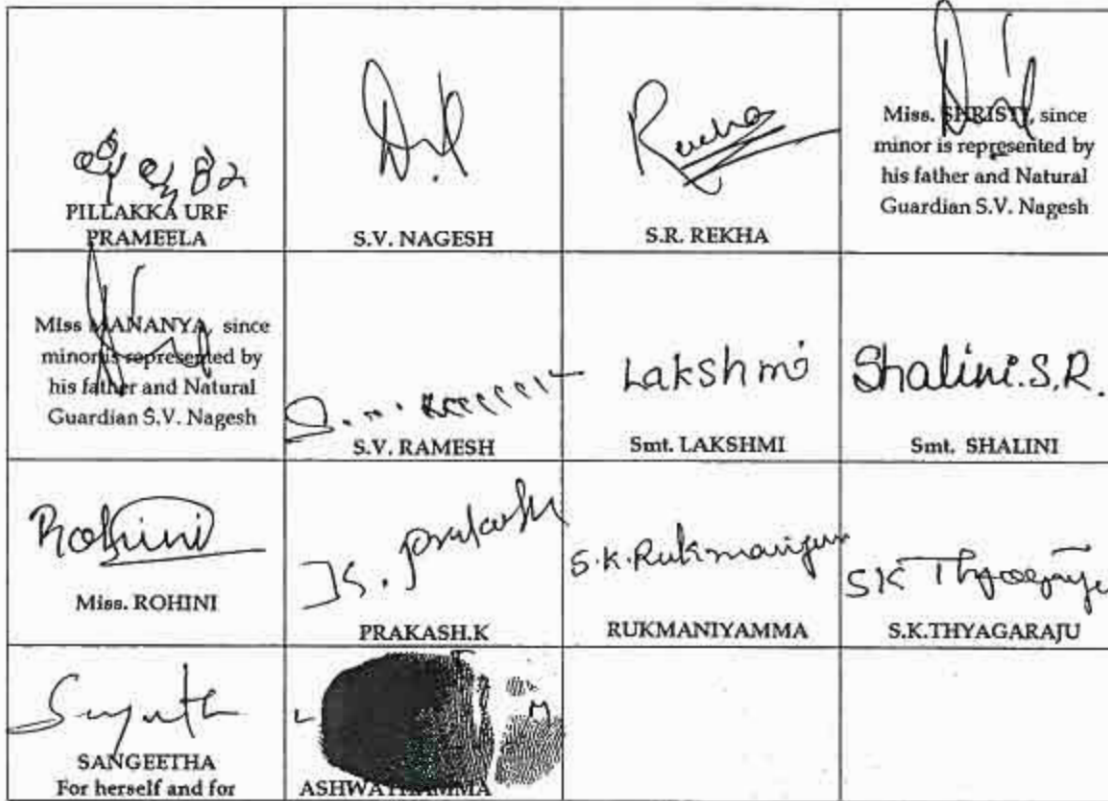 PILLAKKA URF
PRAMEELA
S.V. NAGESH
Rekha
S.R. REKHA
Miss. SHRISTY, since
minor is represented by
his father and Natural
Guardian S.V. Nagesh
Miss MANANYA, since
minor is represented by
his father and Natural
Guardian S.V. Nagesh
S.V. RAMESH
Lakshmi
Smt. LAKSHMI
Shalini.S.R.
Smt. SHALINI
Rohini
Miss. ROHINI
K. Prakash
PRAKASH.K
S.K.Rukmaniyam
RUKMANIYAMMA
SK Thyagaraju
S.K.THYAGARAJU
SANGEETHA
For herself and for
L T M
ASHWATHAMMA